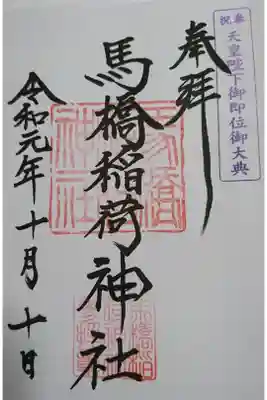 奉祝
天皇陛下御即位御大典
奉拝
馬橋稲荷神社
令和元年十月十日